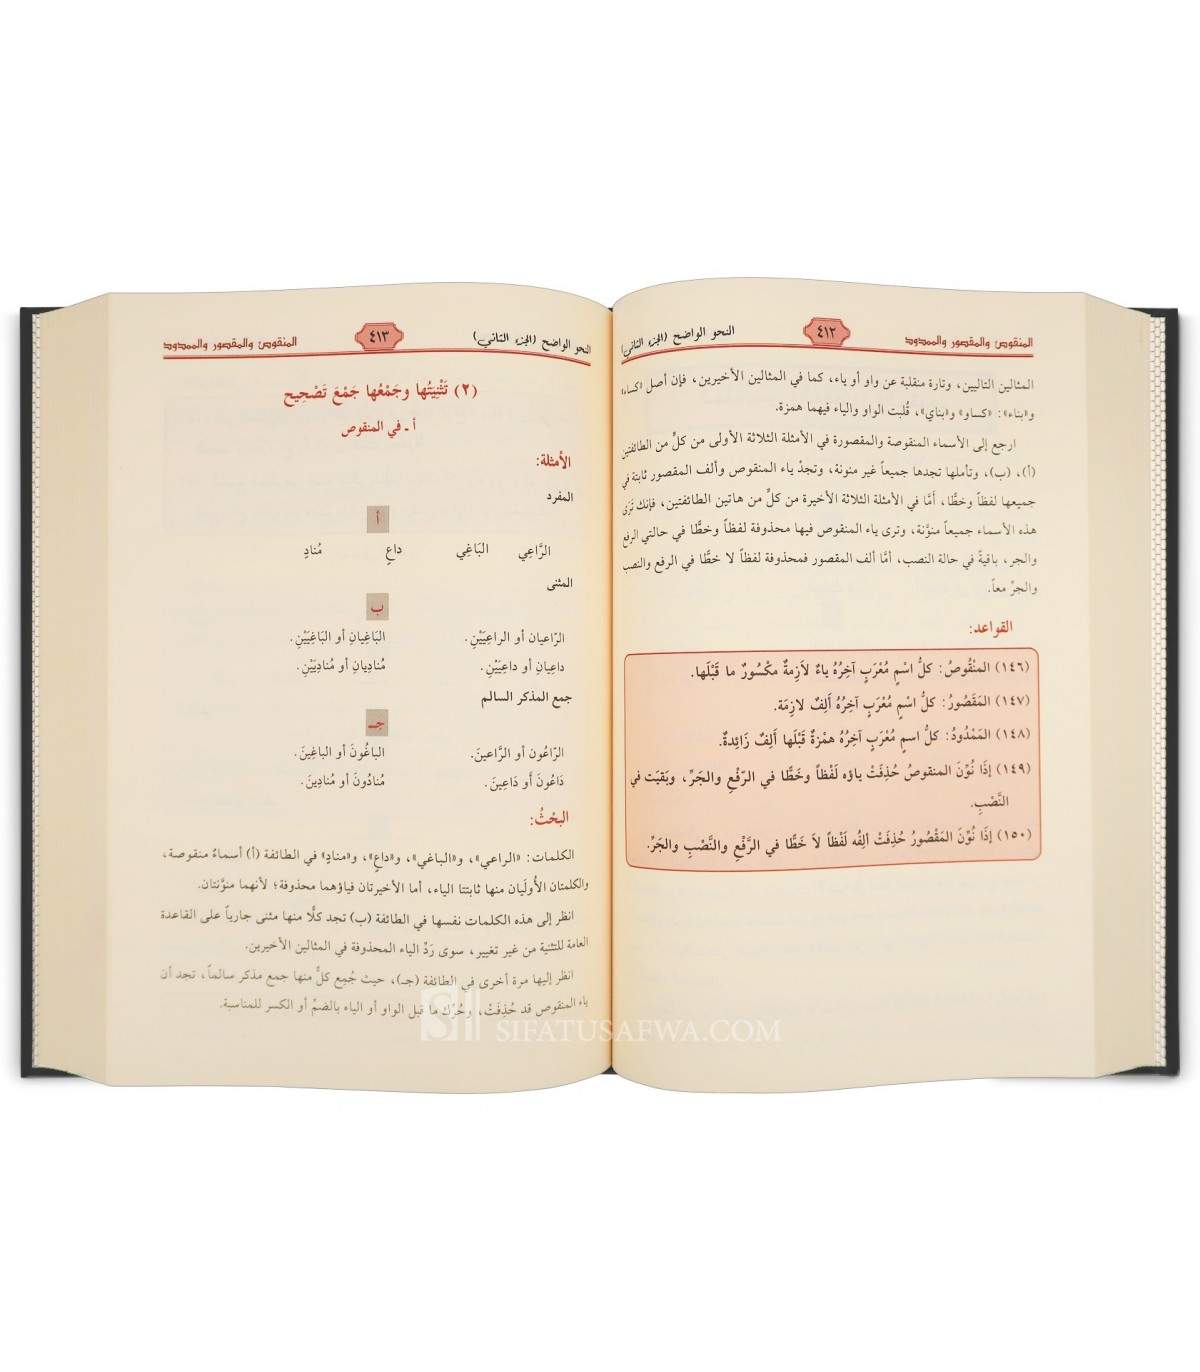 المنقوص والمقصور والممدود
٤١٢
النحو الواضح (الجزء الثاني)
المثالين التاليين، وتارة منقلبة عن واو أو ياء، كما في المثالين الأخيرين، فإن أصل «كساء»
و«بناء»: «كساو» و«بناي»، قُلبت الواو والياء فيهما همزة.
ارجع إلى الأسماء المنقوصة والمقصورة في الأمثلة الثلاثة الأولى من كلِّ من الطائفتين
(أ)، (ب)، وتأملها تجدها جميعاً غير منونة، وتجدْ ياء المنقوص وألف المقصور ثابتة في
جميعها لفظاً وخطًّا، أمَّا في الأمثلة الثلاثة الأخيرة من كلِّ من هاتين الطائفتين، فإنك تَرَى
هذه الأسماء جميعاً منوَّنة، وترى ياء المنقوص فيها محذوفة لفظاً وخطًّا في حالتي الرفع
والجر، باقيةً في حالة النصب، أمَّا ألف المقصور فمحذوفة لفظاً لا خطًّا في الرفع والنصب
والجرِّ معاً.
القواعد:
(١٤٦) المنْقُوصُ: كلُّ اسْمٍ مُعْرَبٍ آخِرُهُ ياءٌ لاَزِمةٌ مكْسُورٌ ما قَبْلَها.
(١٤٧) المَقصُورُ: كلُّ اسْمٍ مُعْرَبٍ آخِرُهُ أَلِفٌ لازِمَة.
(١٤٨) المَمْدُودُ: كلُّ اسمٍ مُعْرَبٍ آخِرُهُ همْزةٌ قَبْلَها أَلِفٌ زَائِدةٌ.
(١٤٩) إذَا نُوِّنَ المنقوصُ حُذِفَتْ ياؤه لَفْظاً وخَطًّا في الرّفْعِ والجَرِّ، وبَقيَت في
النَّصْبِ.
(١٥٠) إذَا نُوِّنَ المَقْصُورُ حُذِفَتْ ألِفُه لَفْظاً لاَ خَطًّا في الرَّفْعِ والنَّصْبِ والجَرِّ.
النحو الواضح (الجزء الثاني)
٤١٣
المنقوص والمقصور والممدود
(٢) تَثْنِيَتُها وجَمْعُها جَمْعَ تَصْحِيح
أ ـ في المنقوص
الأمثلة:
المفرد
أ
الرَّاعِي البَاغِي داعٍ مُنادٍ
المثنى
ب
الرّاعيان أو الراعِيَيْنِ. البَاغِيانِ أو البَاغِيَيْنِ.
داعِيانِ أو داعِيَيْنِ. مُنادِيانِ أو مُنادِيَيْنِ.
جمع المذكر السالم
جـ
الرّاعُون أو الرَّاعينَ. الباغُونَ أو الباغِينَ.
دَاعُونَ أَو دَاعِينَ. مُنادُونَ أو مُنادِينَ.
البحْثُ:
الكلمات: «الراعي»، و«الباغي»، و«داعٍ»، و«منادٍ» في الطائفة (أ) أسماءٌ منقوصة،
والكلمتان الأُولَيان منها ثابتتا الياء، أما الأخيرتان فياؤهما محذوفة؛ لأنهما منوَّنتان.
انظر إلى هذه الكلمات نفسها في الطائفة (ب) تجد كلًّا منها مثنى جارياً على القاعدة
العامة للتثنية من غير تغيير، سوى رَدّ الياء المحذوفة في المثالين الأخيرين.
انظر إليها مرة أخرى في الطائفة (جـ)، حيث جُمِع كلٌّ منها جمع مذكر سالماً، تجد أن
ياء المنقوص قد حُذِفَتْ، وحُرِّك ما قبل الواو أو الياء بالضمّ أو الكسر للمناسبة.
SIFATUSAFWA.COM